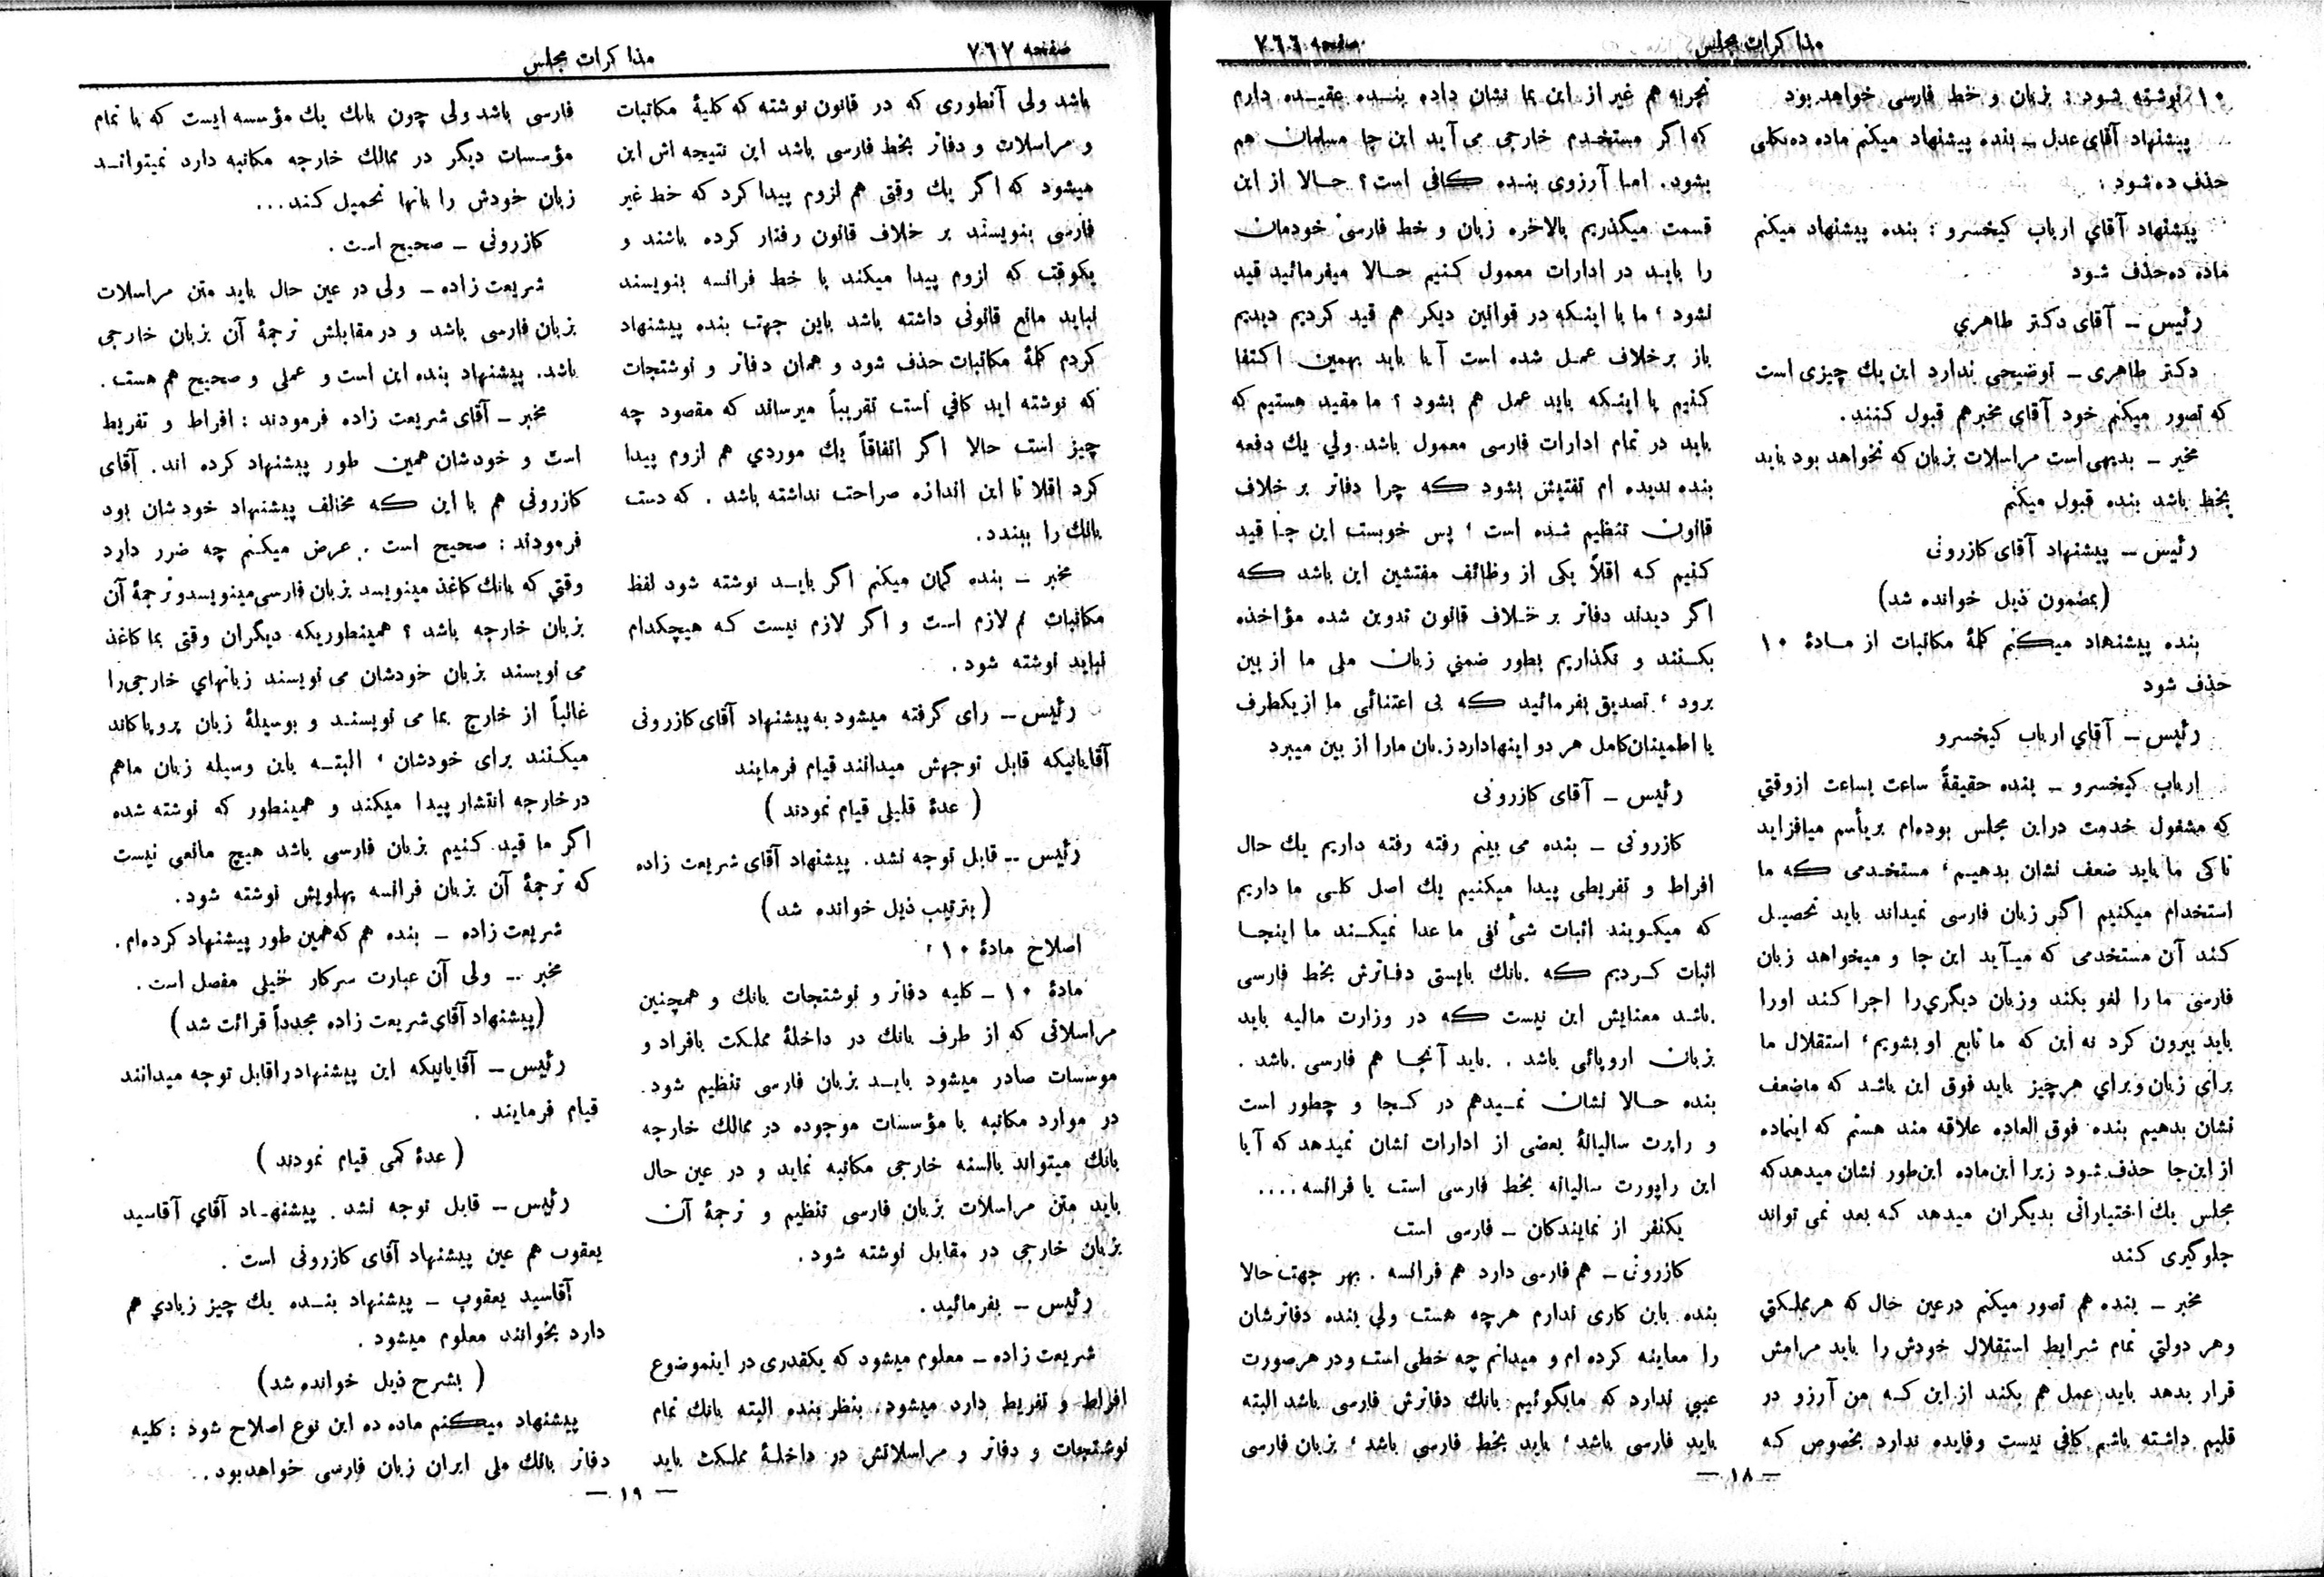 مذاکرات مجلس
صفحه ۷۶۶
۱۰ نوشته شود : بزبان و خط فارسی خواهد بود
پیشنهاد آقای عدل ــ بنده پیشنهاد میکنم ماده ده بکلی
حذف ده شود :
پیشنهاد آقای ارباب کیخسرو : بنده پیشنهاد میکنم
ماده ده حذف شود
رئیس ــ آقای دکتر طاهری
دکتر طاهری ــ توضیحی ندارد این یك چیزی است
که تصور میکنم خود آقای مخبر هم قبول کنند.
مخبر ــ بدیهی است مراسلات بزبان که نخواهد بود باید
بخط باشد بنده قبول میکنم
رئیس ــ پیشنهاد آقای کازرونی
(بمضمون ذیل خوانده شد)
بنده پیشنهاد میکنم کلمهٔ مکاتبات از مادهٔ ۱۰
حذف شود
رئیس ــ آقای ارباب کیخسرو
ارباب کیخسرو ــ بنده حقیقةً ساعت بساعت از وقتی
که مشغول خدمت در این مجلس بوده‌ام بر یأسم میافزاید
تا کی ما باید ضعف نشان بدهیم، مستخدمی که ما
استخدام میکنیم اگر زبان فارسی نمیداند باید تحصیل
کند آن مستخدمی که میآید این جا و میخواهد زبان
فارسی ما را لغو بکند و زبان دیگری را اجرا کند او را
باید بیرون کرد نه این که ما تابع او بشویم، استقلال ما
برای زبان و برای هر چیز باید فوق این باشد که ما ضعف
نشان بدهیم بنده فوق العاده علاقه مند هستم که اینماده
از این جا حذف شود زیرا این ماده این طور نشان میدهد که
مجلس یك اختیاراتی بدیگران میدهد که بعد نمی تواند
جلوگیری کند
مخبر ــ بنده هم تصور میکنم در عین حال که هر مملکتی
و هر دولتی تمام شرایط استقلال خودش را باید مرامش
قرار بدهد باید عمل هم بکند از این که من آرزو در
قلبم داشته باشم کافی نیست و فایده ندارد بخصوص که
تجربه هم غیر از این بما نشان داده بنده عقیده دارم
که اگر مستخدم خارجی می آید این جا مسلمان هم
بشود. اما آرزوی بنده کافی است؟ حالا از این
قسمت میگذریم بالاخره زبان و خط فارسی خودمان
را باید در ادارات معمول کنیم حالا میفرمائید قید
نشود، ما با اینکه در قوانین دیگر هم قید کردیم دیدیم
باز بر خلاف عمل شده است آیا باید بهمین اکتفا
کنیم یا اینکه باید عمل هم بشود؟ ما مقید هستیم که
باید در تمام ادارات فارسی معمول باشد ولی یك دفعه
بنده ندیده ام تفتیش بشود که چرا دفاتر بر خلاف
قانون تنظیم شده است، پس خوبست این جا قید
کنیم که اقلاً یکی از وظائف مفتشین این باشد که
اگر دیدند دفاتر بر خلاف قانون تدوین شده مؤاخذه
بکنند و نگذاریم بطور ضمنی زبان ملی ما از بین
برود، تصدیق بفرمائید که بی اعتنائی ما از یکطرف
با اطمینان کامل هر دو اینها دارد زبان ما را از بین میبرد
رئیس ــ آقای کازرونی
کازرونی ــ بنده می بینم رفته رفته داریم یك حال
افراط و تفریطی پیدا میکنیم یك اصل کلی ما داریم
که میگویند اثبات شئ نفی ما عدا نمیکند ما اینجا
اثبات کردیم که بانك بایستی دفاترش بخط فارسی
باشد معنایش این نیست که در وزارت مالیه باید
بزبان اروپائی باشد . باید آنجا هم فارسی باشد .
بنده حالا نشان نمیدهم در کجا و چطور است
و راپرت سالیانهٔ بعضی از ادارات نشان نمیدهد که آیا
این راپورت سالیانه بخط فارسی است یا فرانسه....
یکنفر از نمایندگان ــ فارسی است
کازرونی ــ هم فارسی دارد هم فرانسه . بهر جهت حالا
بنده باین کاری ندارم هر چه هست ولی بنده دفاترشان
را معاینه کرده ام و میدانم چه خطی است و در هر صورت
عیبی ندارد که ما بگوئیم بانك دفاترش فارسی باشد البته
باید فارسی باشد، باید بخط فارسی باشد، بزبان فارسی
— ۱۸ —
صفحه ۷۶۷
مذاکرات مجلس
باشد ولی آنطوری که در قانون نوشته که کلیهٔ مکاتبات
و مراسلات و دفاتر بخط فارسی باشد این نتیجه اش این
میشود که اگر یك وقتی هم لزوم پیدا کرد که خط غیر
فارسی بنویسند بر خلاف قانون رفتار کرده باشند و
یکوقت که لزوم پیدا میکند با خط فرانسه بنویسند
نباید مانع قانونی داشته باشد باین جهت بنده پیشنهاد
کردم کلمهٔ مکاتبات حذف شود و همان دفاتر و نوشتجات
که نوشته اید کافی است تقریباً میرساند که مقصود چه
چیز است حالا اگر اتفاقاً یك موردی هم لزوم پیدا
کرد اقلا تا این اندازه صراحت نداشته باشد . که دست
بانك را ببندد.
مخبر ــ بنده گمان میکنم اگر باید نوشته شود لفظ
مکاتبات هم لازم است و اگر لازم نیست که هیچکدام
نباید نوشته شود .
رئیس ــ رأی گرفته میشود به پیشنهاد آقای کازرونی
آقایانیکه قابل توجهش میدانند قیام فرمایند
( عدهٔ قلیلی قیام نمودند )
رئیس ــ قابل توجه نشد. پیشنهاد آقای شریعت زاده
(بترتیب ذیل خوانده شد)
اصلاح مادهٔ ۱۰ :
مادهٔ ۱۰ ــ کلیه دفاتر و نوشتجات بانك و همچنین
مراسلاتی که از طرف بانك در داخلهٔ مملکت بافراد و
موسسات صادر میشود باید بزبان فارسی تنظیم شود.
در موارد مکاتبه با مؤسسات موجوده در ممالك خارجه
بانك میتواند بالسنه خارجی مکاتبه نماید و در عین حال
باید متن مراسلات بزبان فارسی تنظیم و ترجمهٔ آن
بزبان خارجی در مقابل نوشته شود.
رئیس ــ بفرمائید.
شریعت زاده ــ معلوم میشود که یکقدری در اینموضوع
افراط و تفریط دارد میشود. بنظر بنده البته بانك تمام
نوشتجات و دفاتر و مراسلاتش در داخلهٔ مملکت باید
فارسی باشد ولی چون بانك یك مؤسسه ایست که با تمام
مؤسسات دیگر در ممالك خارجه مکاتبه دارد نمیتواند
زبان خودش را بآنها تحمیل کند...
کازرونی ــ صحیح است .
شریعت زاده ــ ولی در عین حال باید متن مراسلات
بزبان فارسی باشد و در مقابلش ترجمهٔ آن بزبان خارجی
باشد. پیشنهاد بنده این است و عملی و صحیح هم هست.
مخبر ــ آقای شریعت زاده فرمودند : افراط و تفریط
است و خودشان همین طور پیشنهاد کرده اند. آقای
کازرونی هم با این که مخالف پیشنهاد خودشان بود
فرمودند : صحیح است . عرض میکنم چه ضرر دارد
وقتی که بانك کاغذ مینویسد بزبان فارسی مینویسد و ترجمهٔ آن
بزبان خارجه باشد؟ همینطوریکه دیگران وقتی بما کاغذ
می نویسند بزبان خودشان می نویسند زبانهای خارجی را
غالباً از خارج بما می نویسند و بوسیلهٔ زبان پروپاکاند
میکنند برای خودشان، البته باین وسیله زبان ما هم
در خارجه انتشار پیدا میکند و همینطور که نوشته شده
اگر ما قید کنیم بزبان فارسی باشد هیچ مانعی نیست
که ترجمهٔ آن بزبان فرانسه پهلویش نوشته شود.
شریعت زاده ــ بنده هم که همین طور پیشنهاد کرده‌ام.
مخبر ــ ولی آن عبارت سرکار خیلی مفصل است .
(پیشنهاد آقای شریعت زاده مجدداً قرائت شد)
رئیس ــ آقایانیکه این پیشنهاد را قابل توجه میدانند
قیام فرمایند .
( عدهٔ کمی قیام نمودند )
رئیس ــ قابل توجه نشد . پیشنهاد آقای آقاسید
یعقوب هم عین پیشنهاد آقای کازرونی است .
آقاسید یعقوب ــ پیشنهاد بنده یك چیز زیادی هم
دارد بخوانند معلوم میشود .
( بشرح ذیل خوانده شد)
پیشنهاد میکنم ماده ده این نوع اصلاح شود : کلیه
دفاتر بانك ملی ایران زبان فارسی خواهد بود.
— ۱۹ —